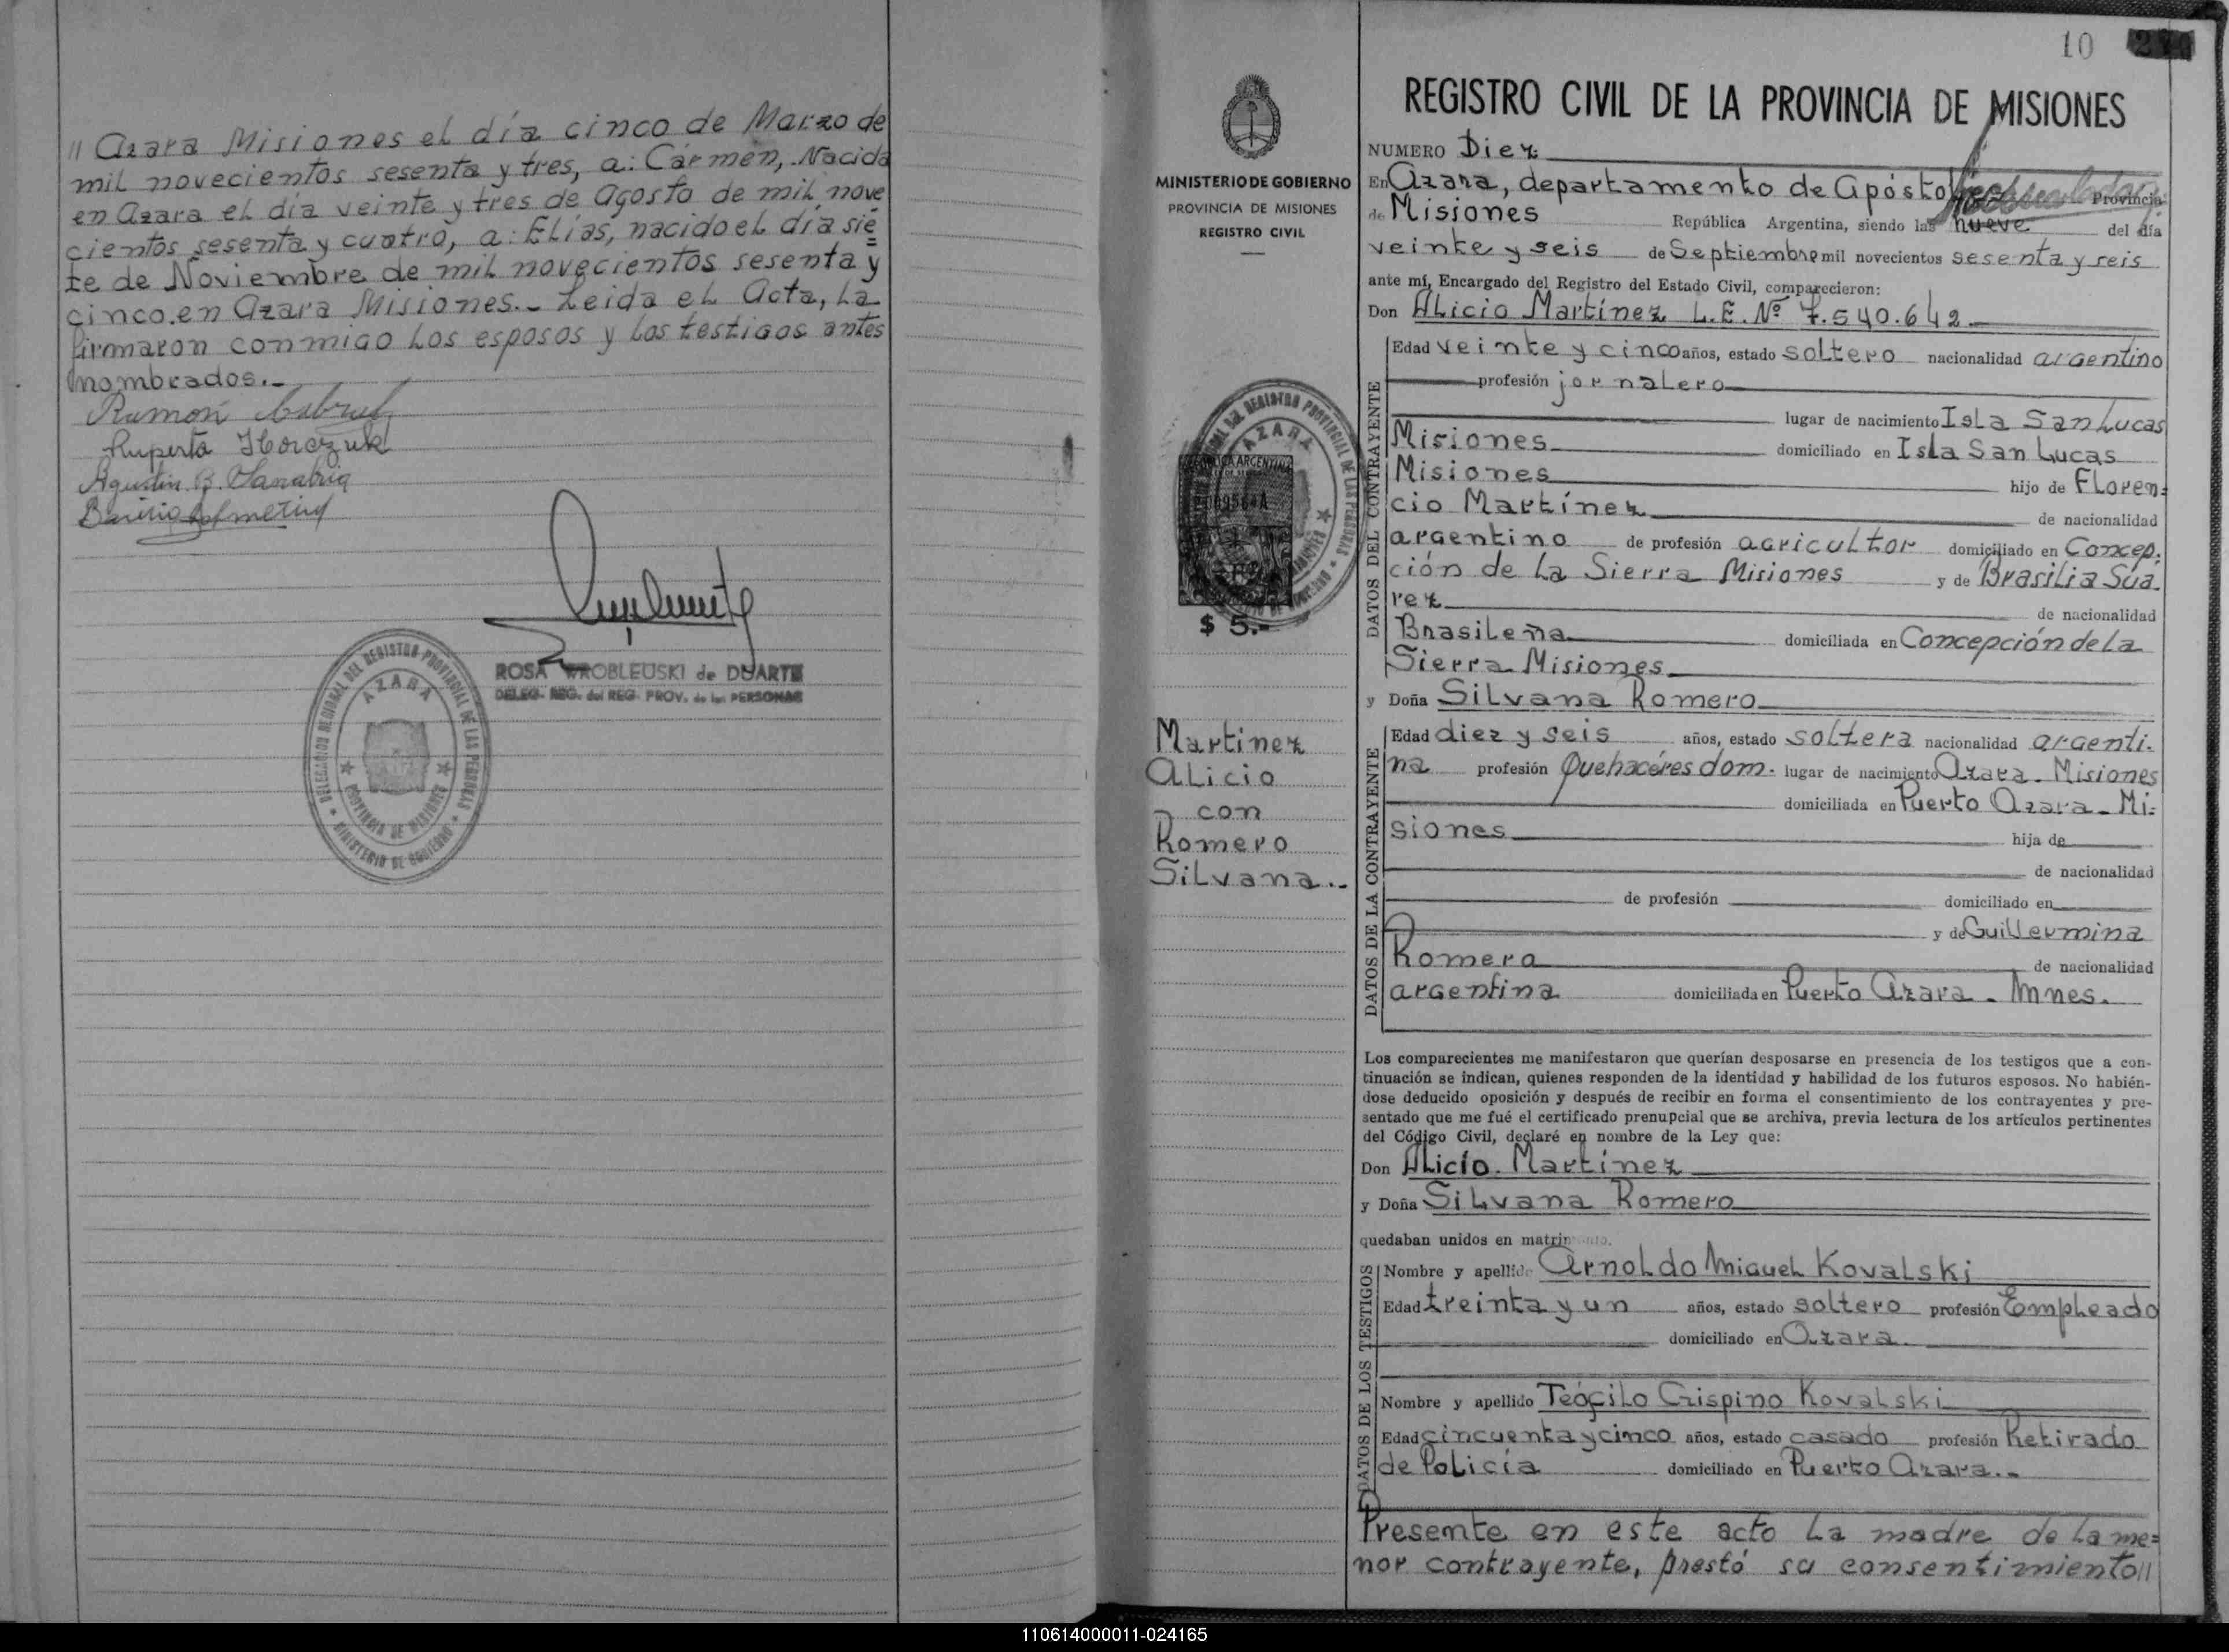 " Azara Misiones el día cinco de Marzo de
mil novecientos sesenta y tres, a: Cármen, Nacida
en Azara el día veinte y tres de Agosto de mil nove
cientos sesenta y cuatro, a: Elías, nacido el día sie=
te de Noviembre de mil novecientos sesenta y
cinco.en Azara Misiones.- Leida el Acta, la
firmaron conmigo los esposos y los testigos antes
nombrados.-
Ramón Cabral
Ruperta Horczuk
Agustin B. Sanabria
ROSA WROBLEUSKI de DUARTE
DELEG. REG. del REG. PROV. de las PERSONAS
DELEGACION REGIONAL DEL REGISTRO PROVINCIAL DE LAS PERSONAS
AZARA
PROVINCIA DE MISIONES
MINISTERIO DE GOBIERNO
10
REGISTRO CIVIL DE LA PROVINCIA DE MISIONES
MINISTERIO DE GOBIERNO
PROVINCIA DE MISIONES
REGISTRO CIVIL
NUMERO Diez
En Azara, departamento de Apóstoles Provincia
de Misiones República Argentina, siendo las nueve del día
veinte y seis de Septiembre mil novecientos sesenta y seis
ante mí, Encargado del Registro del Estado Civil, comparecieron:
Don Alicio Martínez L.E. Nº 7.540.642
DATOS DEL CONTRAYENTE
Edad veinte y cinco años, estado soltero nacionalidad argentino
profesión jornalero
lugar de nacimiento Isla San Lucas
Misiones domiciliado en Isla San Lucas
Misiones hijo de Floren=
cio Martínez de nacionalidad
argentino de profesión agricultor domiciliado en Concep.
ción de la Sierra Misiones y de Brasilia Suá.
rez de nacionalidad
Brasileña domiciliada en Concepción de la
Sierra Misiones
REPUBLICA ARGENTINA
$ 5.-
y Doña Silvana Romero
DATOS DE LA CONTRAYENTE
Edad diez y seis años, estado soltera nacionalidad argenti.
na profesión Quehacéres dom. lugar de nacimiento Azara. Misiones
domiciliada en Puerto Azara - Mi=
siones hija de
de nacionalidad
de profesión domiciliado en
y de Guillermina
Romera de nacionalidad
argentina domiciliada en Puerto Azara - Mnes.
Martinez
Alicio
con
Romero
Silvana..
Los comparecientes me manifestaron que querían desposarse en presencia de los testigos que a con-
tinuación se indican, quienes responden de la identidad y habilidad de los futuros esposos. No habién-
dose deducido oposición y después de recibir en forma el consentimiento de los contrayentes y pre-
sentado que me fué el certificado prenupcial que se archiva, previa lectura de los artículos pertinentes
del Código Civil, declaré en nombre de la Ley que:
Don Alicio. Martínez
y Doña Silvana Romero
quedaban unidos en matrimonio.
DATOS DE LOS TESTIGOS
Nombre y apellido Arnoldo Miguel Kovalski
Edad treinta y un años, estado soltero profesión Empleado
domiciliado en Azara.
Nombre y apellido Teófilo Crispino Kovalski
Edad cincuenta y cinco años, estado casado profesión Retirado
de Policía domiciliado en Puerto Azara..
Presente en este acto la madre de la me=
nor contrayente, prestó su consentimiento"
110614000011-024165